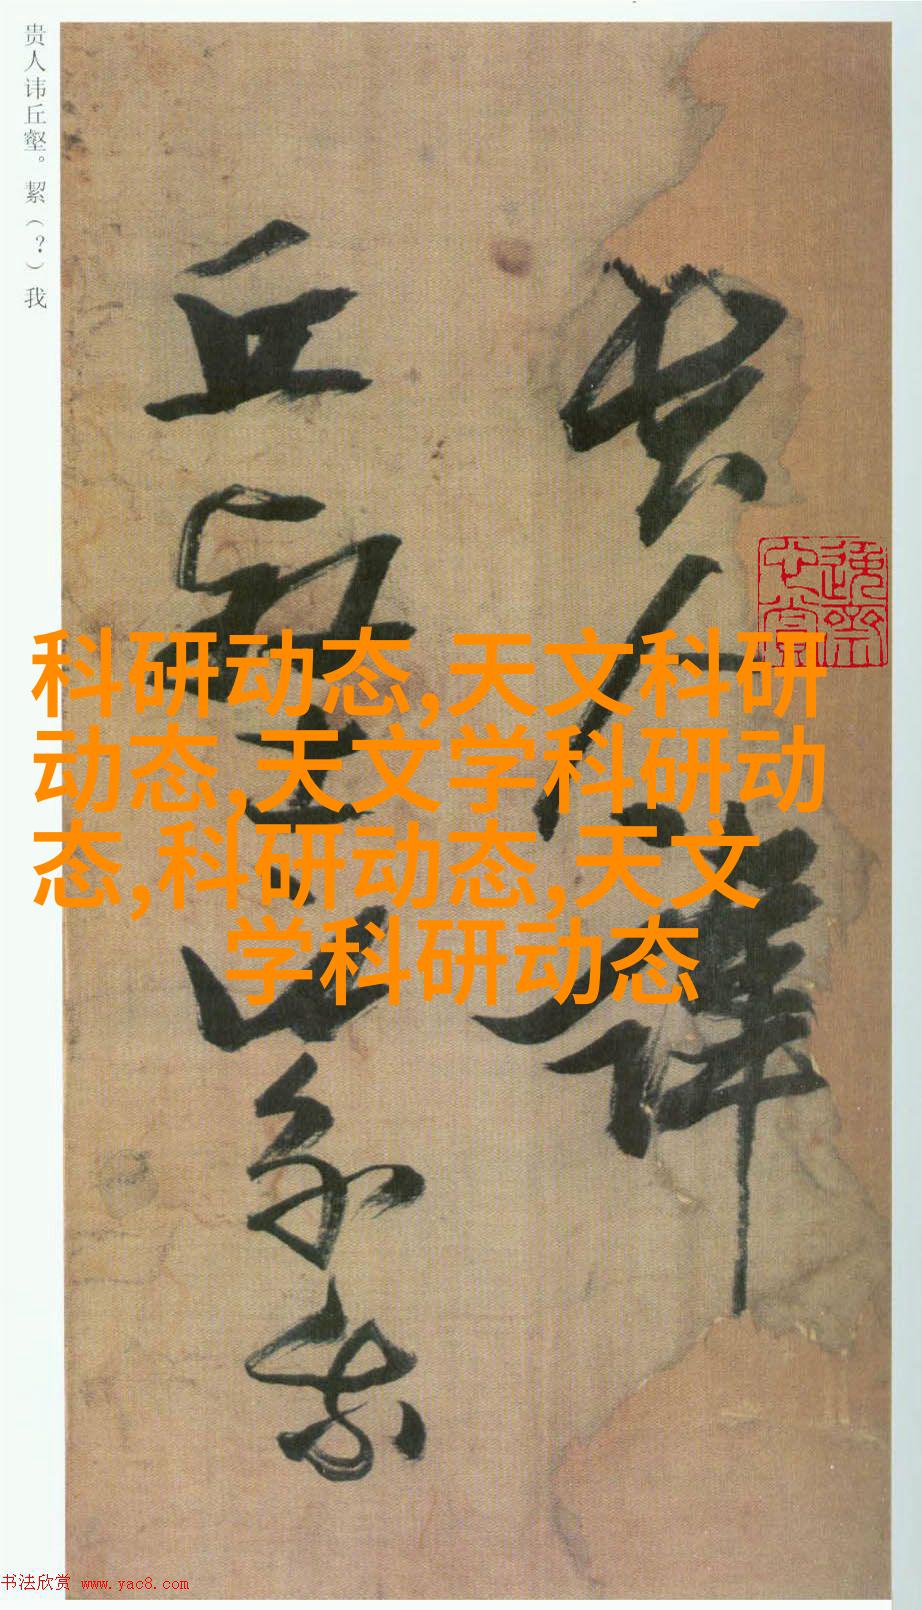 贵人讳丘壑。絜（？）我
贵人讳
丘壑絜我
科研动态,天文科研
动态,天文学科研动
态,科研动态,天文
学科研动态
书法欣赏 www.yac8.com